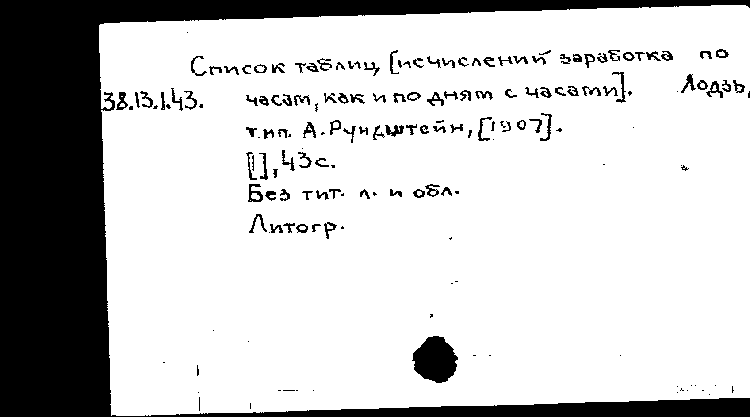 Список таблиц, [исчислений заработка по
38.13.1.43. часам, как и по дням с часами]. Лодзь,
тип. А. Рундштейн, [1907].
[1], 43 с.
Без тит. л. и обл.
Литогр.